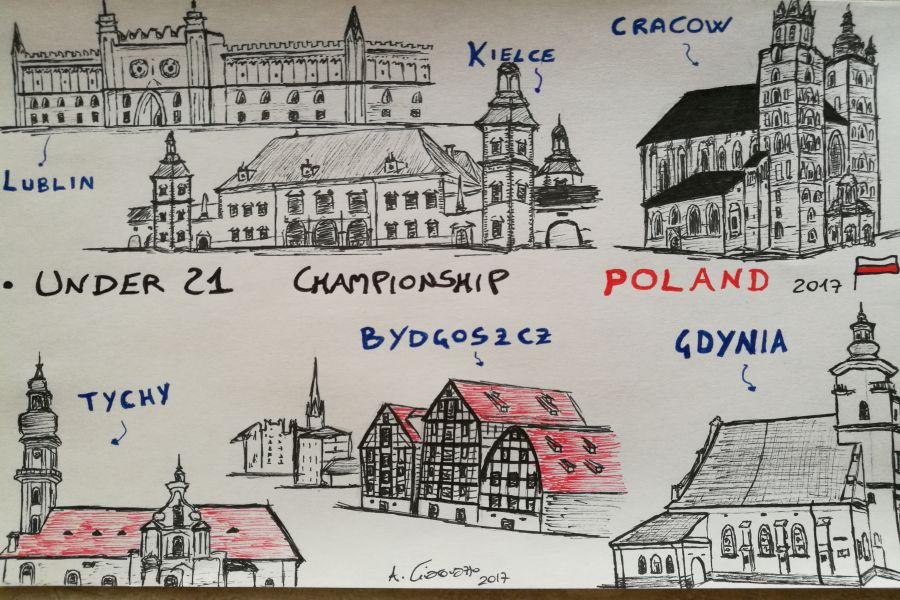 KIELCE
CRACOW
LUBLIN
• UNDER 21 CHAMPIONSHIP POLAND 2017
BYDGOSZCZ
GDYNIA
TYCHY
A.
2017